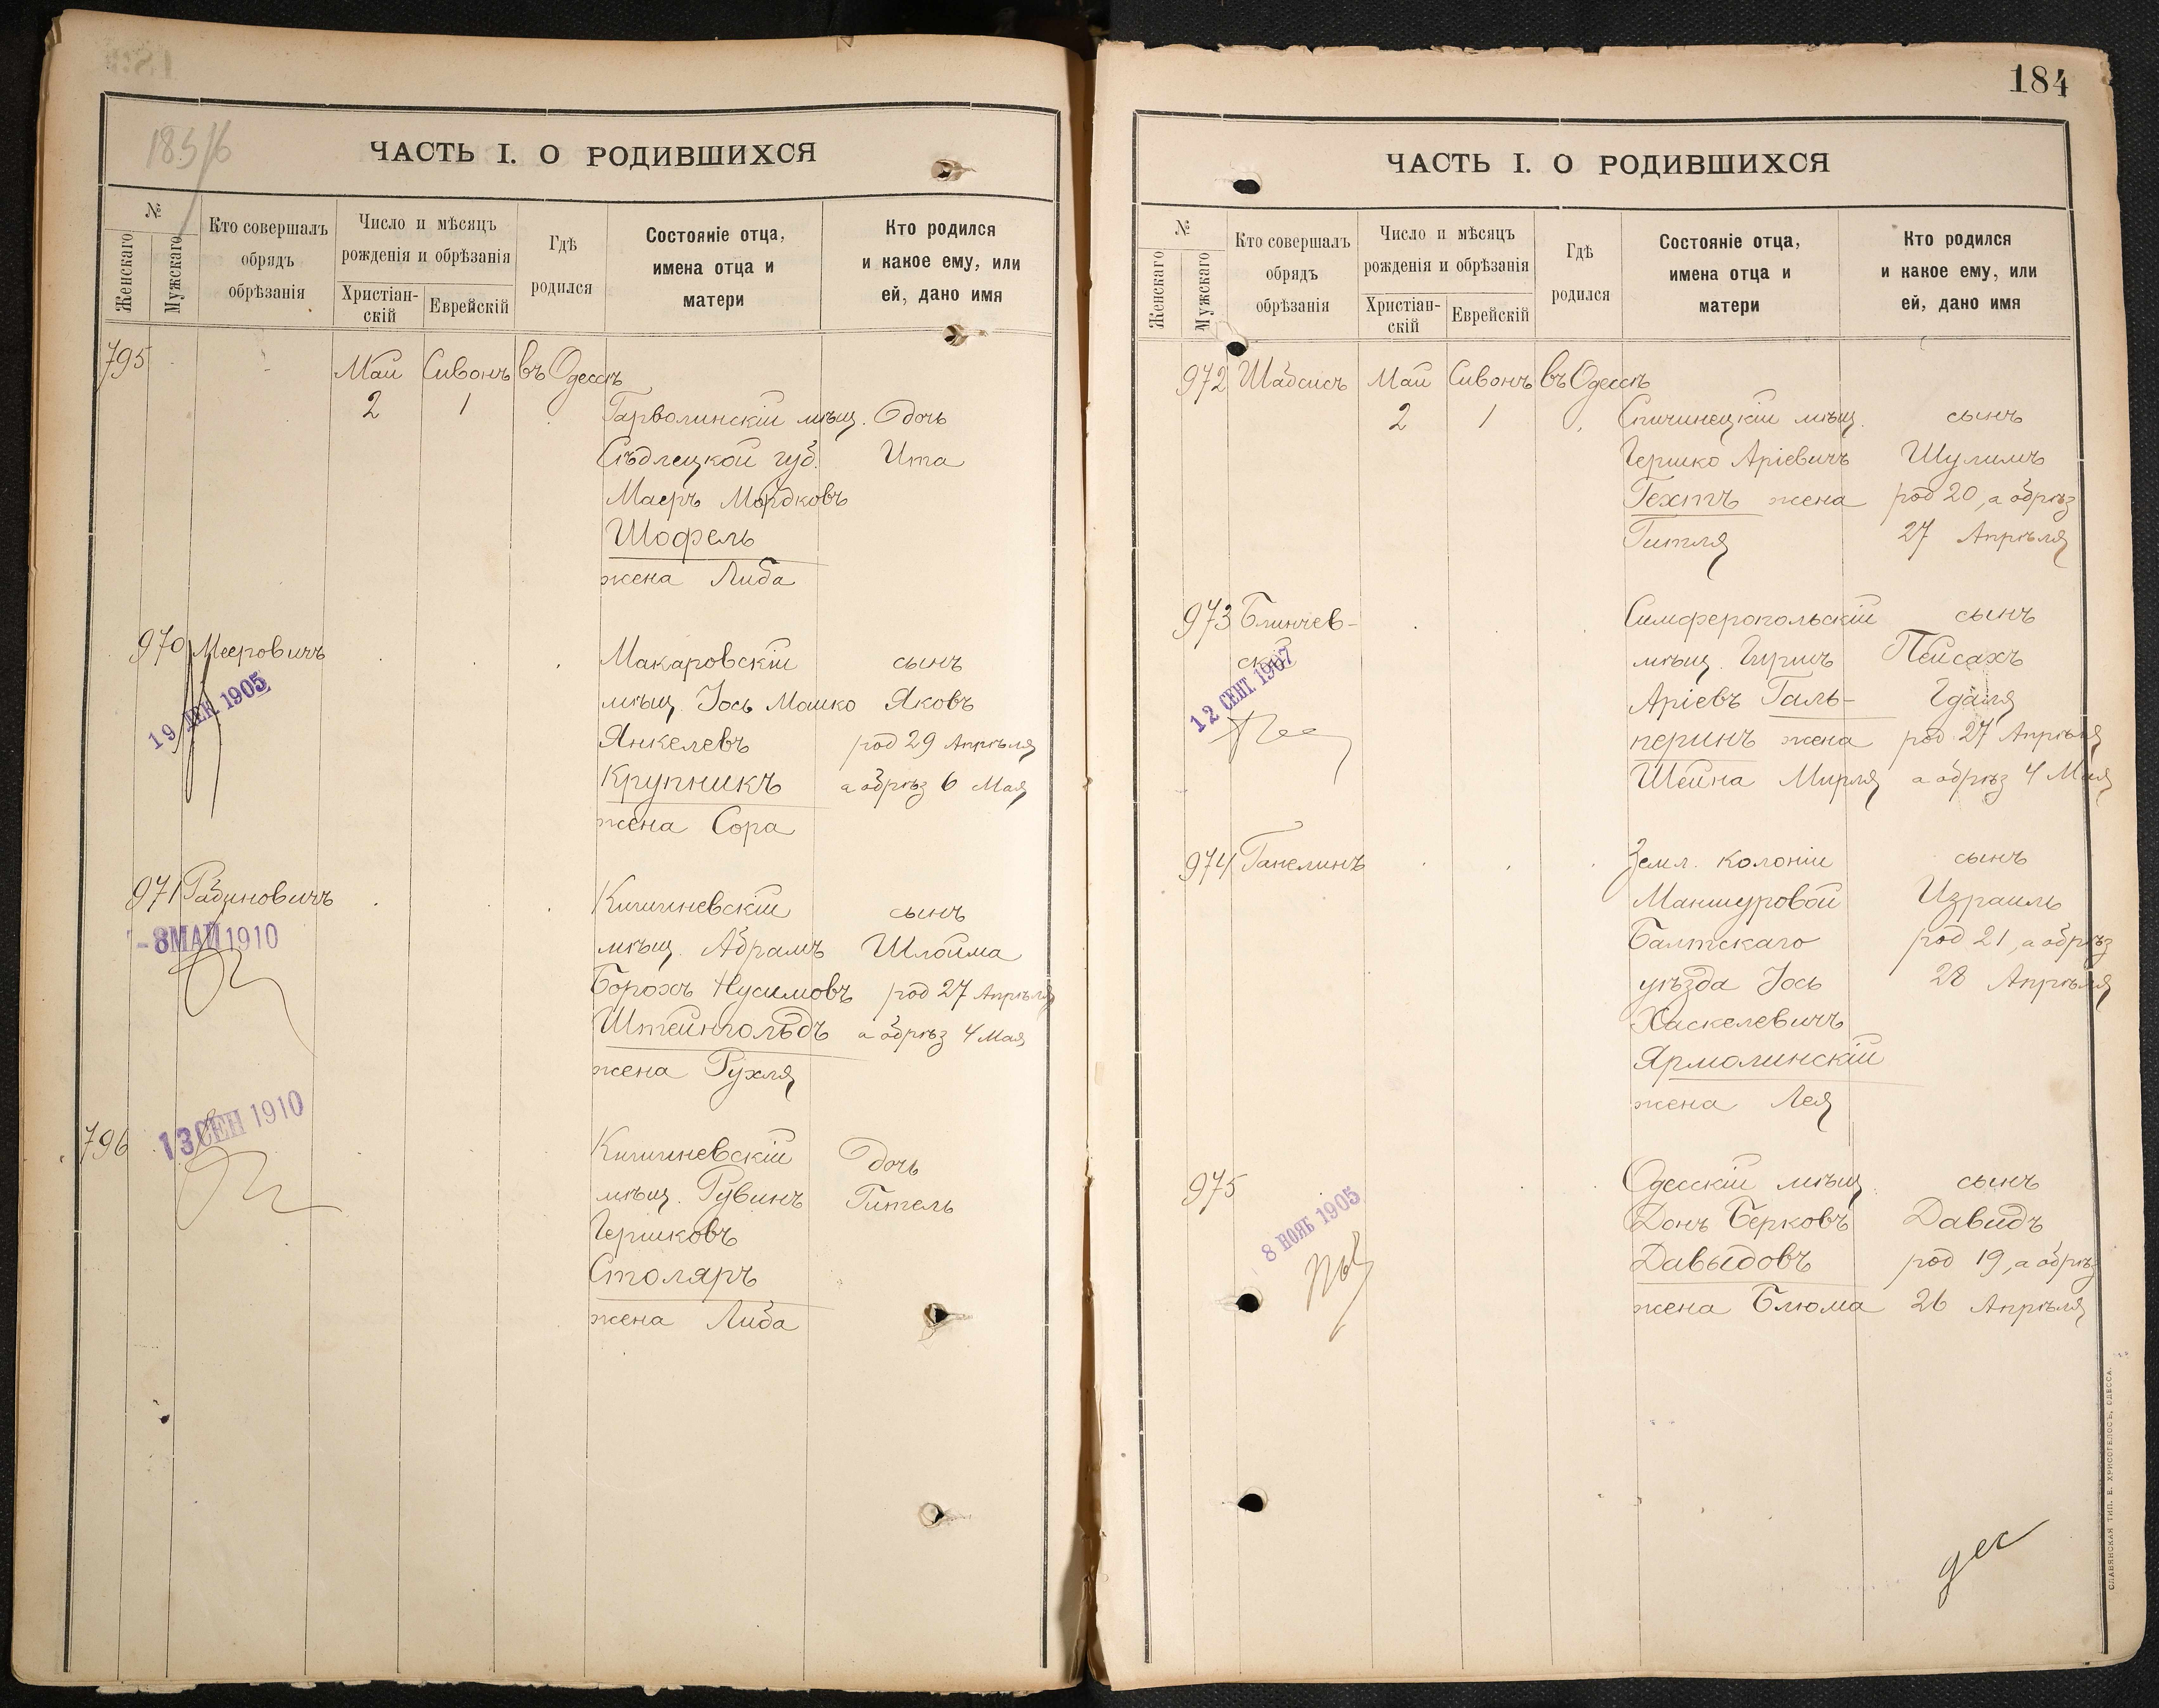 183/6
ЧАСТЬ I. О РОДИВШИХСЯ
№
Женскаго
Мужскаго
Кто совершалъ
обрядъ
обрѣзанія
Число и мѣсяцъ
рожденія и обрѣзанія
Христіан-
скій
Еврейскій
Гдѣ
родился
Состояніе отца,
имена отца и
матери
Кто родился
и какое ему, или
ей, дано имя
795 Май Сивонъ въ Одессѣ
2 1
Гарволинскій мѣщ. дочь
Сѣдлецкой губ. Ита
Маеръ Мордковъ
Шофель
жена Либа
970 Мееровичъ Макаровскій сынъ
мѣщ. Іось Мошко Яковъ
19 ДЕК 1905
Янкелевъ род 29 Апрѣля
Крупникъ а обрѣз 6 Мая
жена Сора
971 Рабиновичъ Кишиневскій сынъ
-8 МАЙ 1910
мѣщ. Абрамъ Шлойма
Борохъ Нусимовъ род 27 Апрѣля
Штейнгольдъ а обрѣз 4 Мая
жена Рухля
13 СЕН 1910
796 Кишиневскій дочь
мѣщ. Рувинъ Гитель
Гершковъ
Столяръ
жена Либа
184
ЧАСТЬ I. О РОДИВШИХСЯ
№
Женскаго
Мужскаго
Кто совершалъ
обрядъ
обрѣзанія
Число и мѣсяцъ
рожденія и обрѣзанія
Христіан-
скій
Еврейскій
Гдѣ
родился
Состояніе отца,
имена отца и
матери
Кто родился
и какое ему, или
ей, дано имя
972 Шабсисъ Май Сивонъ въ Одессѣ
2 1
Спичинецкій мѣщ. сынъ
Гершко Аріевичъ Шулимъ
Гехтъ жена род 20, а обрѣз
Гитля 27 Апрѣля
973 Блинчев- Симферопольскій сынъ
скій мѣщ. Гиршъ Пейсахъ
12 СЕНТ. 1907
Аріевъ Галь- Гдаля
перинъ жена род 27 Апрѣля
Шейна Мирля а обрѣз 4 Мая
974 Ганелинъ Земл. колоніи сынъ
Маншуровой Израиль
Балтскаго род 21, а обрѣз
уѣзда Іось 28 Апрѣля
Хаскелевичъ
Ярмолинскій
жена Лея
975 Одесскій мѣщ. сынъ
8 НОЯБ 1905
Донъ Берковъ Давидъ
Давыдовъ род 19, а обрѣз
жена Блюма 26 Апрѣля
СЛАВЯНСКАЯ ТИП. Е. ХРИСОГЕЛОСЪ, ОДЕССА.